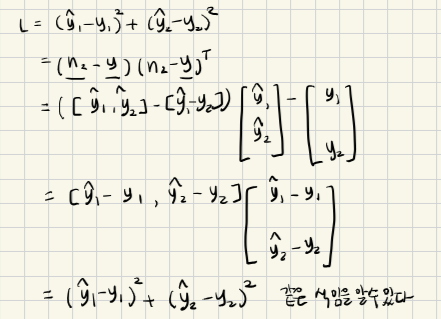 L = (ŷ₁-y₁)² + (ŷ₂-y₂)²
= (n₂ - y) (n₂-y)ᵀ
= ([ ŷ₁, ŷ₂] - [ŷ₁-y₂]) [ŷ₁ ŷ₂] - [y₁ y₂]
= [ŷ₁ - y₁ , ŷ₂ - y₂] [ŷ₁ - y₁ ŷ₂ - y₂]
= (ŷ₁-y₁)² + (ŷ₂-y₂)² 같은 식임을 알 수 있다